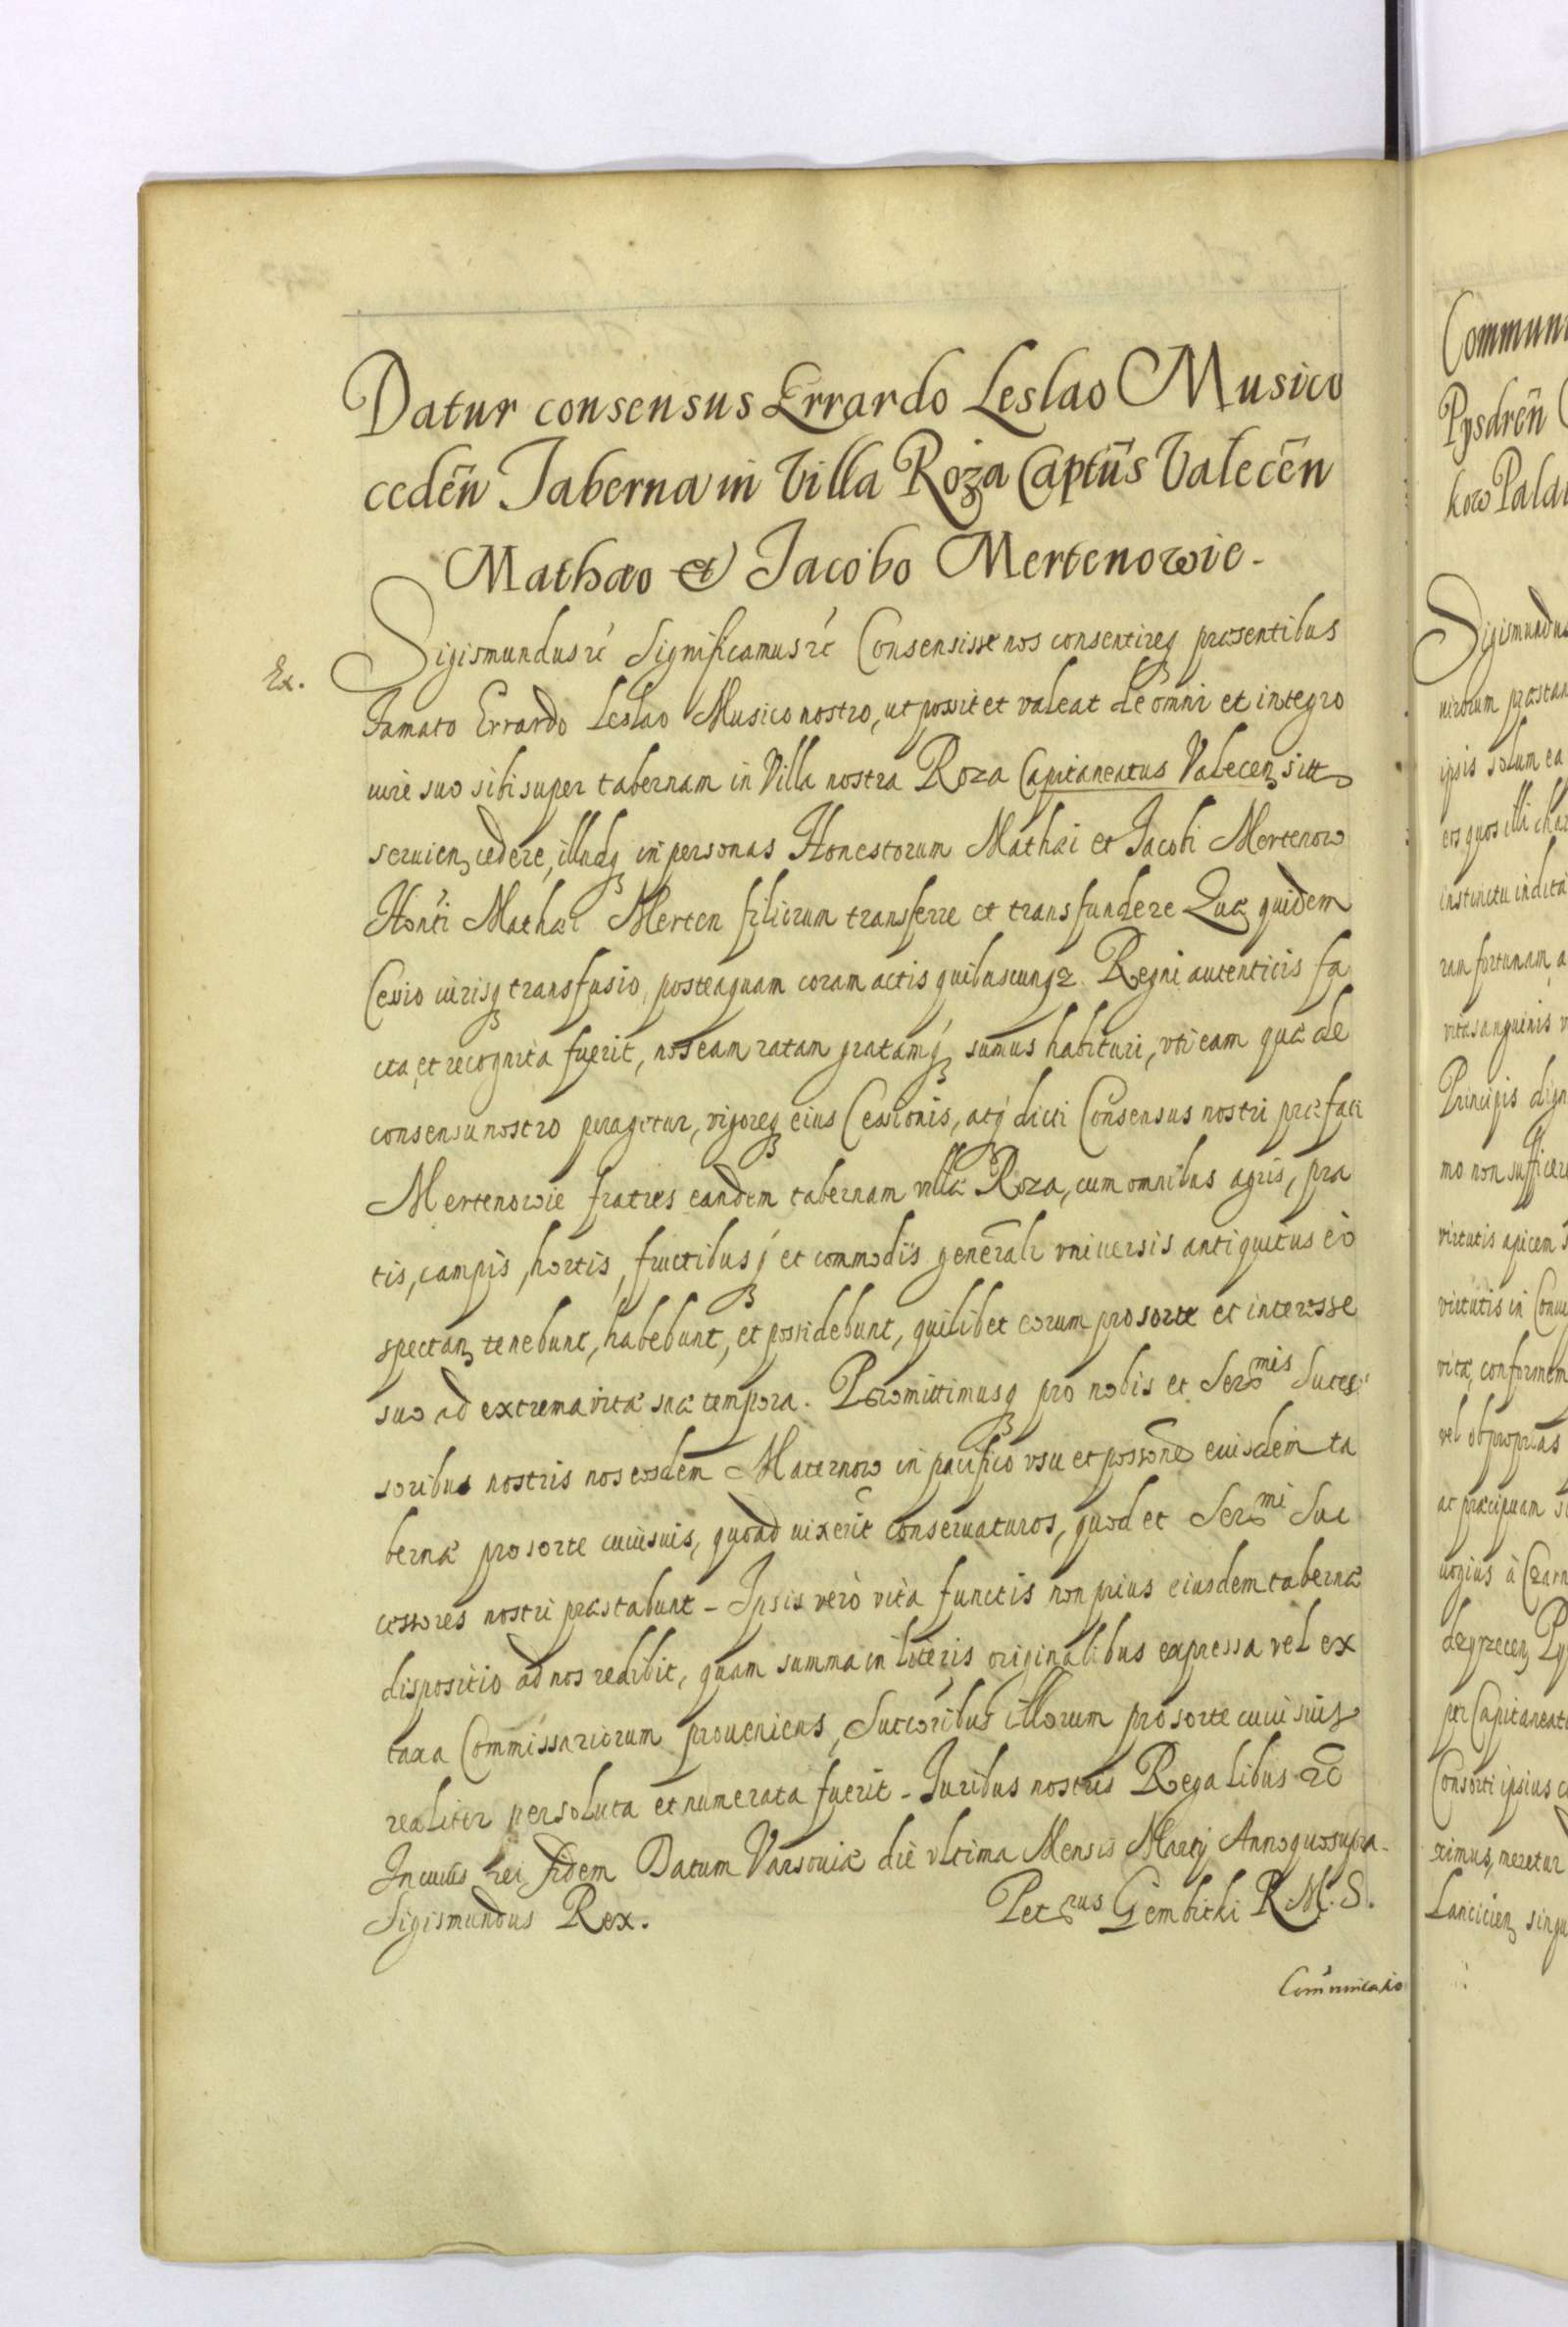 Datur consensus Errardo Leslao Musico
cedeñ Taberna in Villa Roza Captũs Valeceñ
Mathæo et Jacobo Mertenowie.
Ex.
Sigismundus etc̃ Significamus etc̃ Consensisse nos consentireq præsentibus
Famato Errardo Leslao Musico nostro, ut possit et valeat de omni et integro
iure suo sibi super tabernam in Villa nostra Roza Capitaneatus Valecen sitt
seruien cedere, illudq in personas Honestorum Mathæi et Jacobi Mertenow
Honti Mathæi Merten filiorum transferre et transfundere Quæ quidem
Cessio iurisq transfusio, posteaquam coram actis quibuscunq Regni autenticis fa
cta, et recognita fuerit, nos eam ratam gratamq sumus habituri, vti eam quæ de
consensu nostro peragitur, vigoreq eius Cessionis, atq dicti Consensus nostri præfati
Mertenowie fratres eandem tabernam villæ Roza, cum omnibus agris, pra
tis, campis, hortis, fructibusq et commodis generalr vniuersis antiquitus eo
spectan tenebunt, habebunt, et possidebunt, quilibet eorum pro sorte et interesse
suo ad extrema vitæ suæ tempora. Promittimusq pro nobis et Sermis Succes
soribus nostris nos eosdem Maternow in pacifico vsu et possone euisdem ta
bernæ pro sorte cuiusuis, quoad uixerit conseruaturos, quod et Sermi Suc
cessores nostri præstabunt - Ipsis verò vita functis non prius eiusdem tabernæ
dispositio ad nos redibit, quam summa in literis originalibus expressa vel ex
taxa Commissariorum proueniens, Succoribus illorum pro sorte cuiusuis
realiter persoluta et numerata fuerit - Juribus nostris Regalibus etc̃
In cuius rei fidem Datum Varsouiæ die vltima Mensis Martij Anno quo supra.
Sigismundus Rex. Petrus Gembicki R.M.S.
Communicatio
Commun
Pysdreñ
kow Pala
Sigismundu
uirorum præstan
ipsis solum ea
eos quos illi char
instinctu indita
ram fortunam, a
vitæ sanguinis v
Principis dign
mo non sufficere
virtutis apicem
virtutis in Conu
vitæ, conformem
vel ob proprias
ac præcipuam
uogius à Czarn
per Capitaneat
Consorti ipsius
ximus, meretur
Lancicien singu